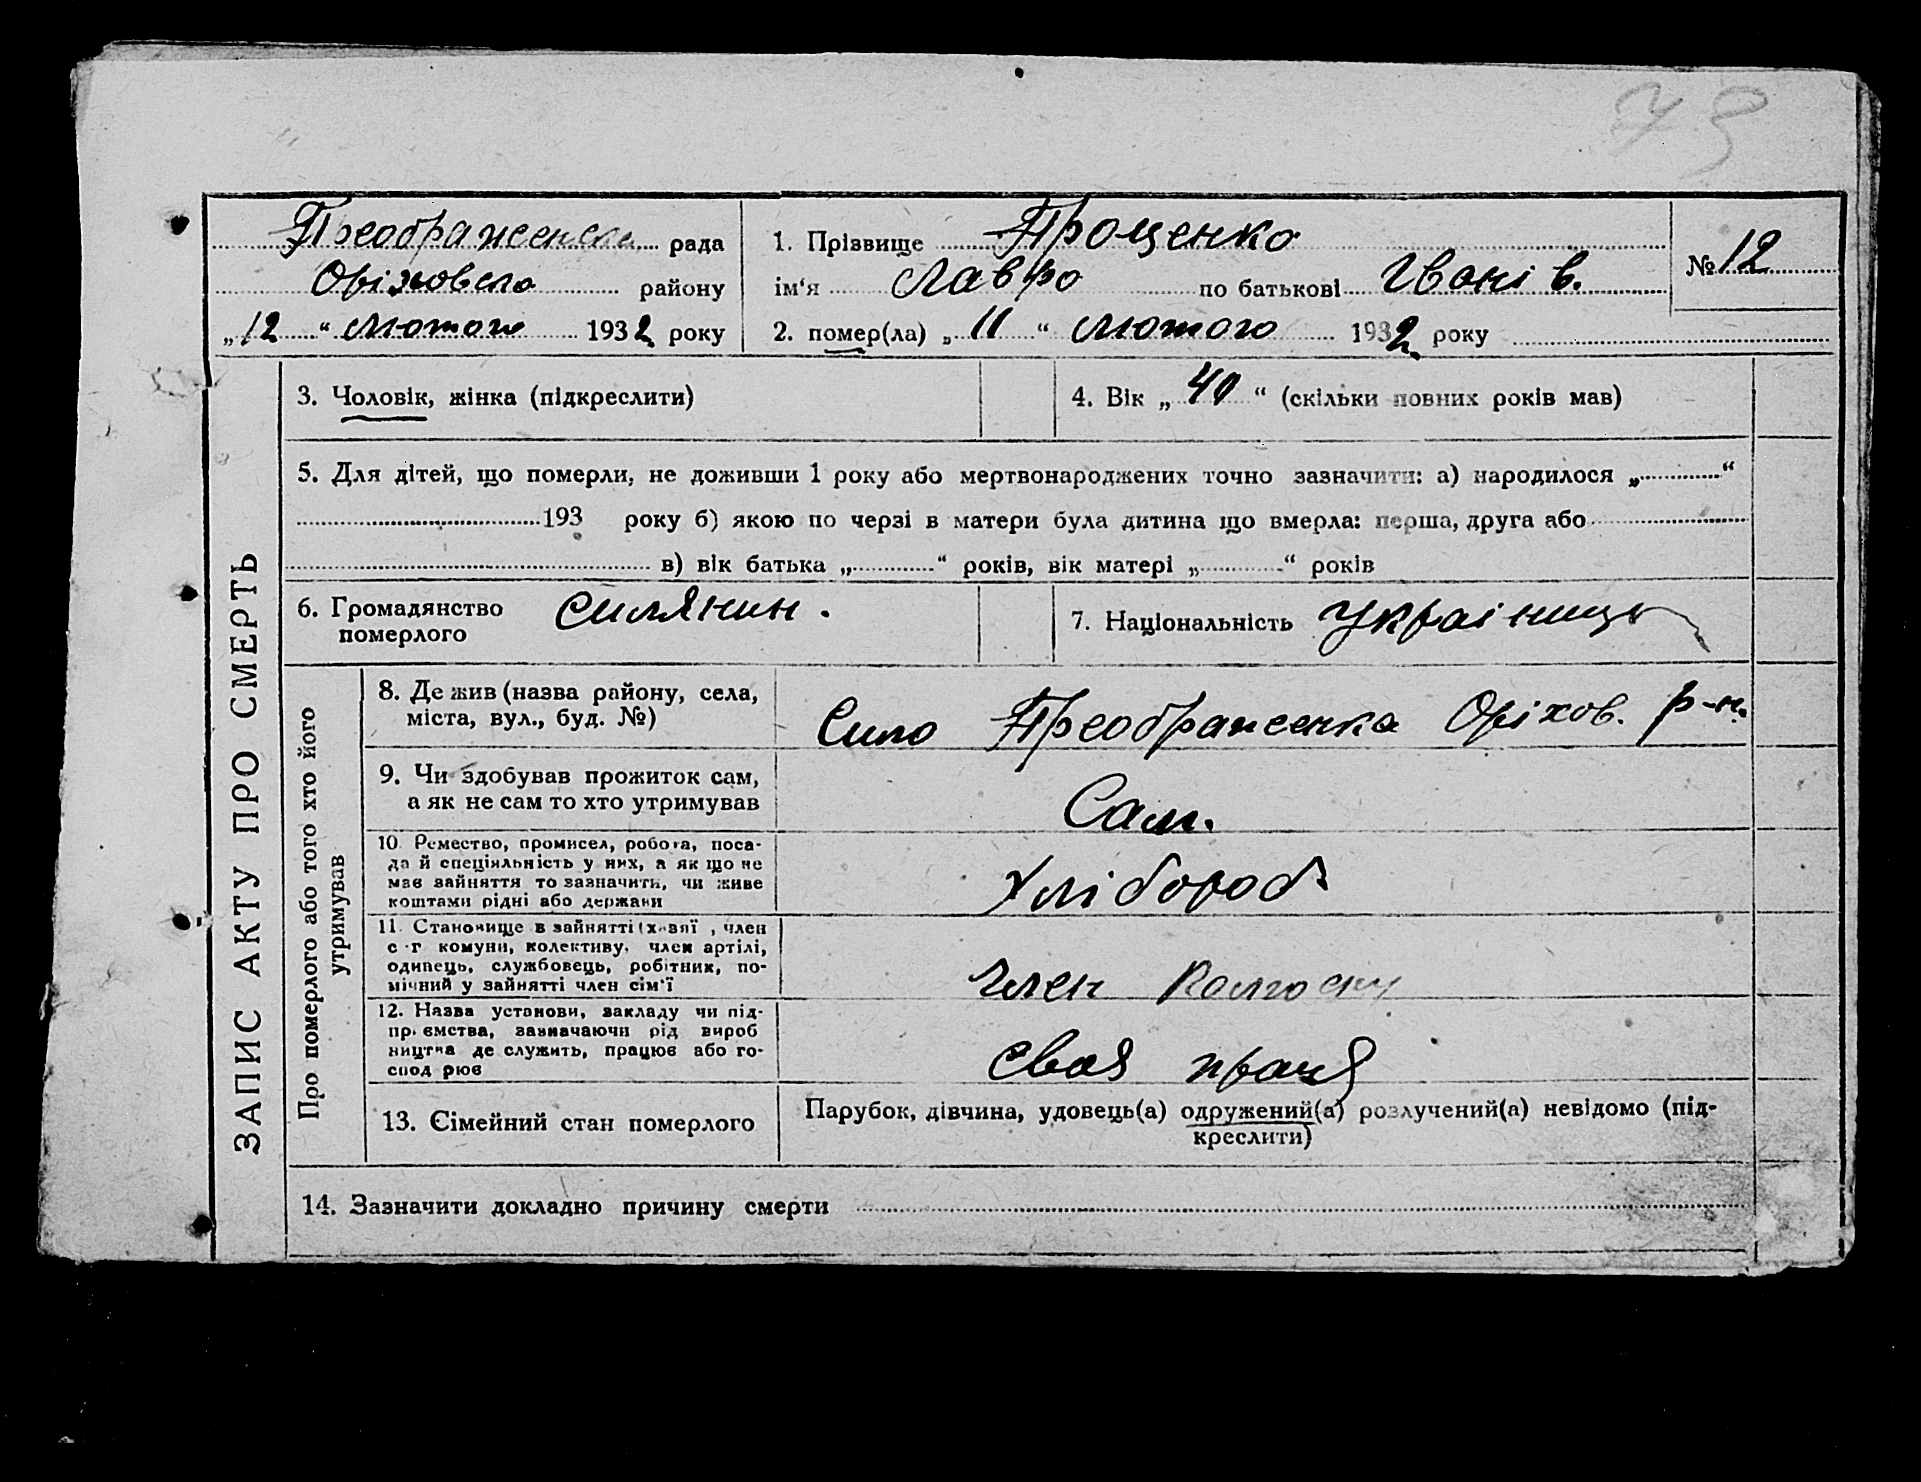 79
Преображенська рада
Оріховсго району
„12“ Лютого 1932 року
1. Прізвище Проценко
ім'я Лавро по батькові Івані в.
№ 12
2. помер(ла) „11“ лютого 1932 року
3. Чоловік, жінка (підкреслити)
4. Вік „40“ (скільки повних років мав)
5. Для дітей, що померли, не доживши 1 року або мертвонароджених точно зазначити: а) народилося „ “
193 року б) якою по черзі в матери була дитина що вмерла: перша, друга або
в) вік батька „ “ років, вік матері „ “ років
6. Громадянство
померлого
силянин.
7. Національність Україниць
ЗАПИС АКТУ ПРО СМЕРТЬ
Про померлого або того хто його
утримував
8. Де жив (назва району, села,
міста, вул., буд. №)
Сило Преображенка Оріхов. р-н.
9. Чи здобував прожиток сам,
а як не сам то хто утримував
Сам.
10. Ремество, промисел, робота, поса-
да й спеціяльність у них, а як що не
має зайняття то зазначити, чи живе
коштами рідні або держави
Хлібороб
11. Становище в зайнятті (хазяї, член
с-г комуни, колективу, член артілі,
одинець, службовець, робітник, по-
мічний у зайнятті член сім'ї
Член колгоспу
12. Назва установи, закладу чи під-
приємства, зазначаючи рід вироб
ництва де служить, працює або го-
спод рює
своя праця
13. Сімейний стан померлого
Парубок, дівчина, удовець(а) одружений(а) розлучений(а) невідомо (під-
креслити)
14. Зазначити докладно причину смерти